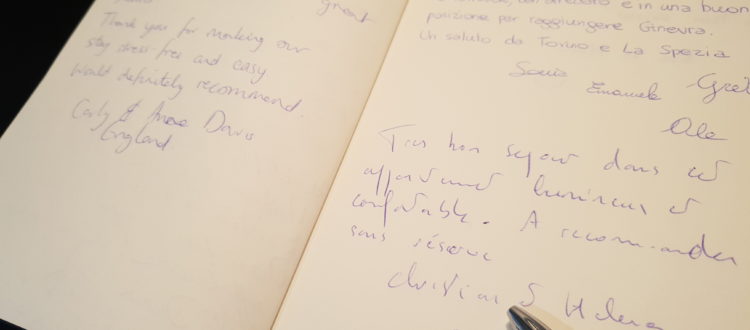 great
Thank you for making our
stay stress free and easy
Would definitely recommend.
Carly & Anne Davis
England
e in una buon
posizione per raggiungere Ginevra.
Un saluto da Torino e La Spezia
Sonia
Emanuele
Ale
Tres bon sejour dans cet
appartement lumineux et
confortable. A recommander
sans réserve
Christian & Helene